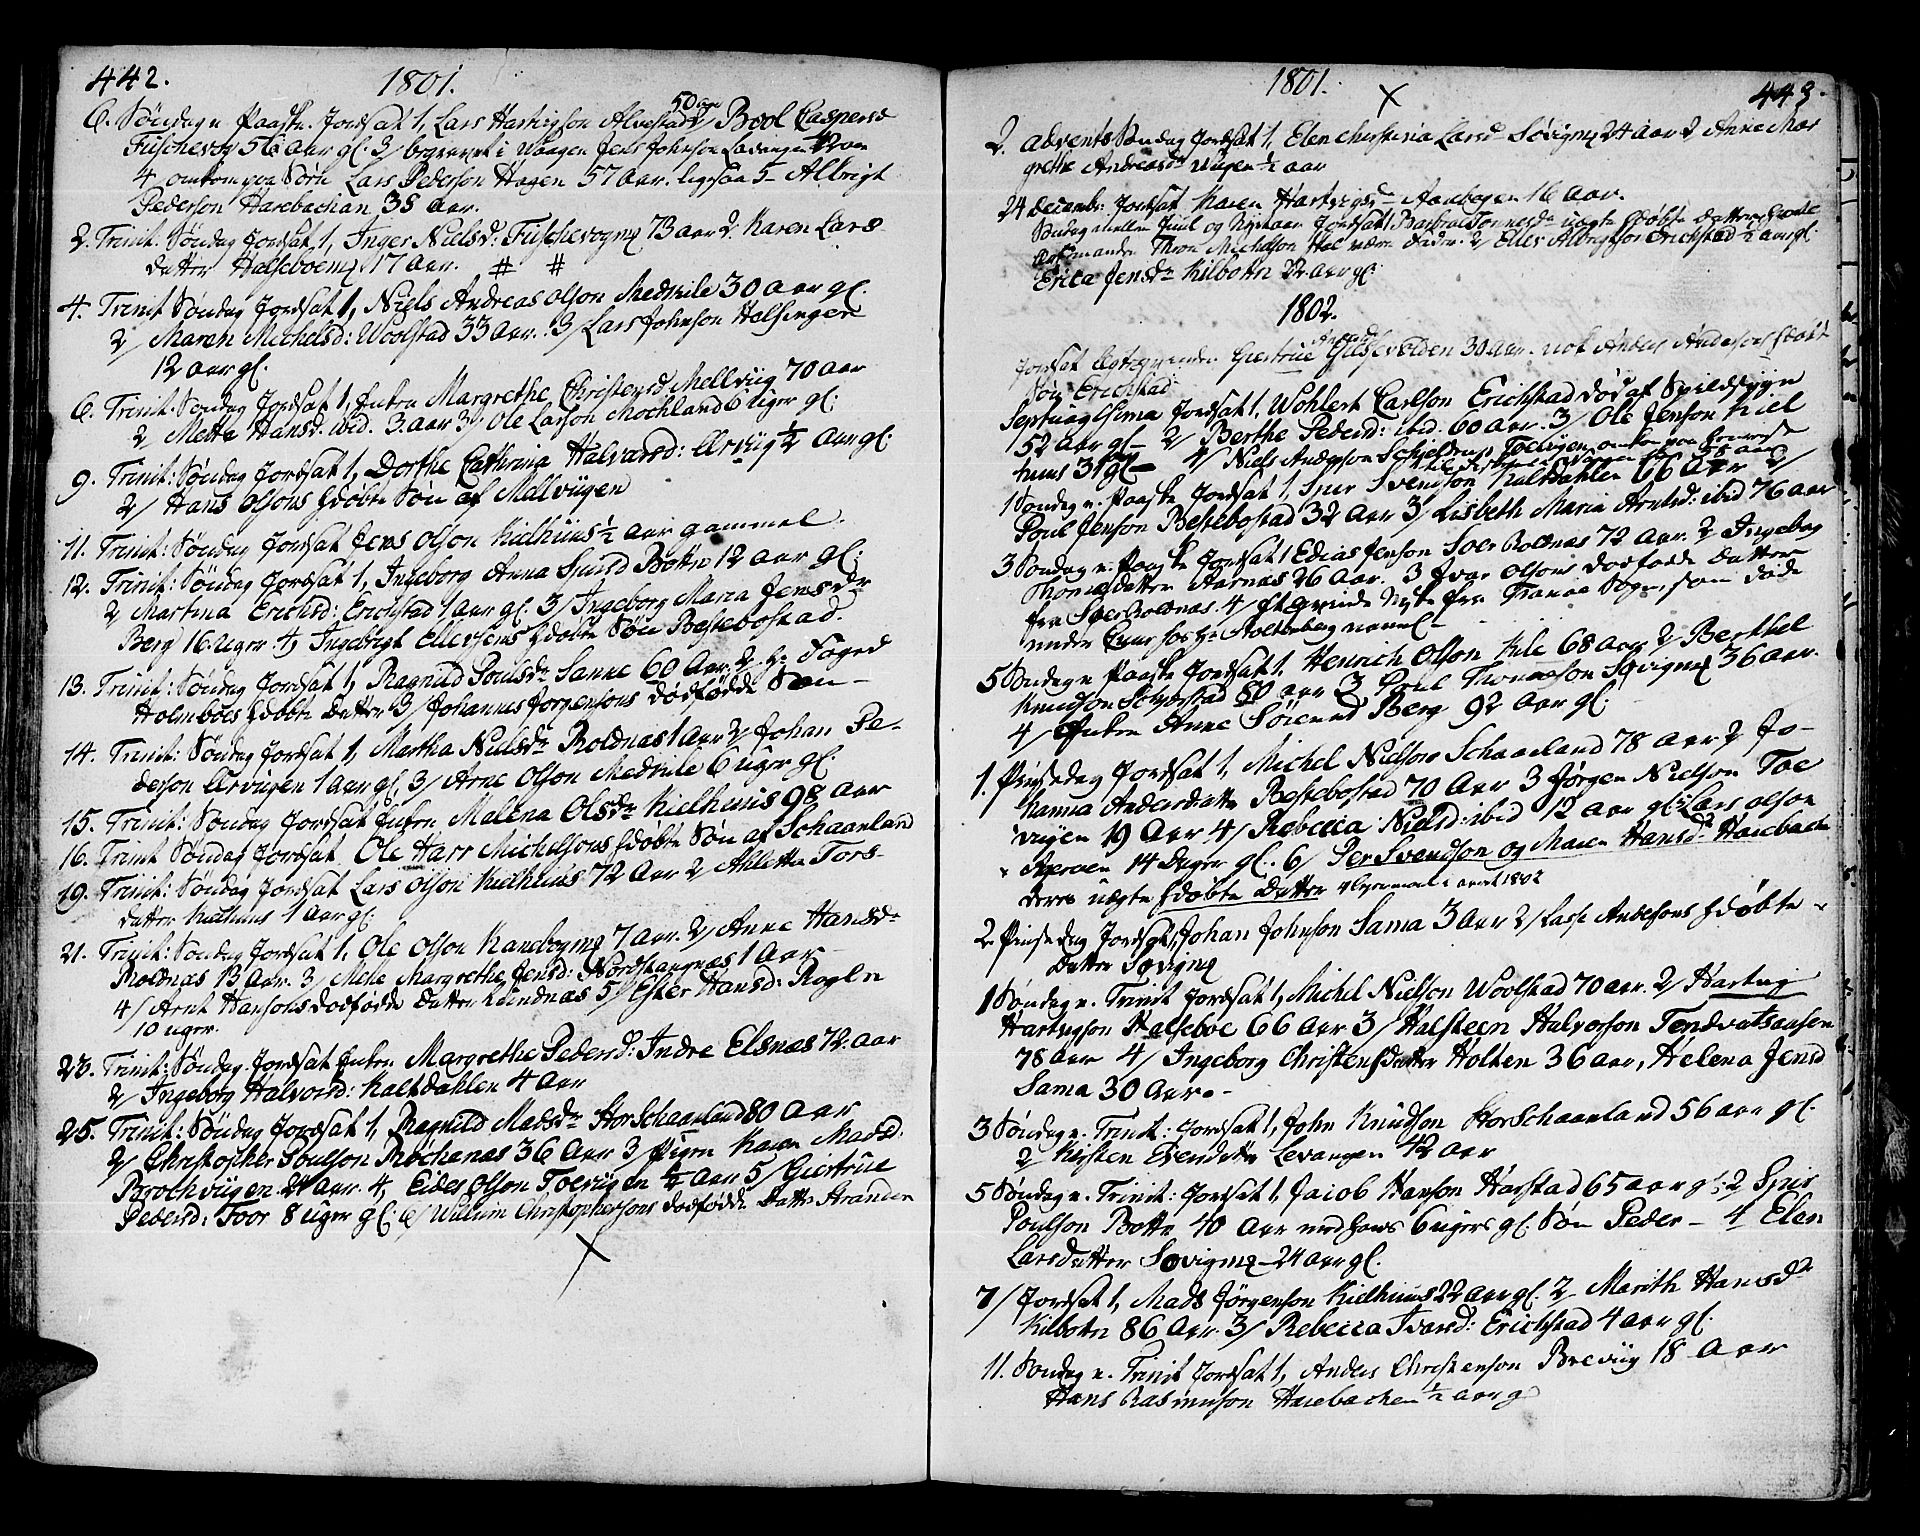 442. 1801.
6. Søndag n. Paaske. Jordsat 1, Lars Hartvigson Alvestad 50 aar 2/ Boel Caspersd
Fuschevog 56 aar gl: 3/ begravet i Waagen Jens Johnson Lavangen 40 aar
4, omkom paa Søen Lars Pederson Hagen 57 aar. ligesaa 5 Albrigt
Pederson Harebachan 38 aar.
2. Trinit: Søndag Jordsat 1, Inger Nielsd: Fuschevogn 73 aar 2. Karen Lars-
datter Halseboen 17 aar. # #
4. Trinit Søndag Jordsat 1, Niels Andreas Olson Medkile 30 aar gl.
2/ Maren Michelsd: Woolstad 33 aar. 3/ Lars Johnson Helsinger
12 aar gl.
6. Trinit: Søndag Jordsat 1, Enken Margrethe Christensd Mellviig 70 aar
2 Mette Hansd: ibid. 3. aar 3/ Ole Larson Mochland 6 uger gl:
9. Trinit: Søndag Jordsat 1, Dorthe Cathrina Halvarsd: Ervüg ½ aar gl:
2/ Hans Olsons hdøbte Søn af Malvügen
11. Trinit: Søndag Jordsat Jens Olson Kielhuus ½ aar gammel.
12. Trinit: Søndag Jordsat 1, Ingeborg Anna Sjursd Botten 12 aar gl:
2/ Martina Erichsd: Erichstad 1 aar gl. 3/ Ingeborg Maria Jensdr
Berg 16 uger. 4, Ingebrigt Ellersens hdøbte Søn Bestebostad.
13. Trinit: Søndag Jordsat 1, Ragnild Poulsdr Sanne 60 aar. 2. Hr Foged
Holmboes hdøbte Datter 3/ Johannes Jørgensons dødfødde Søn –
14. Trinit: Søndag Jordsat 1, Martha Nielsdr Roldnas 1 aar 2/ Johan Pe-
derson Ervigen 1 aar gl. 3/ Arne Olson Medkile 6 uger gl.
15. Trinit: Søndag Jordsat Enken Malena Olsdr Kielhuus 98 aar
16. Trinit Søndag Jordsat Ole Harr Michelsons hdøbte Søn af Schaanland
19. Trinit: Søndag Jordsat Lars Olson Kielhuus 72 aar 2 Ahlette Tors-
datter Kielhuus 1 aar gl:
21. Trinit: Søndag Jordsat 1, Ole Olson Kanebogn 7 aar. 2/ Anne Hansdr
Roldnæs 13 aar. 3/ Mette Margrethe Jensd: Nordstangnæs 1 aar –
4/ Arnt Hansons dødfødde Datter Lundnæs 5/ Ester Hansd: Roglen
10 uger.
23. Trinit: Søndag. Jordsat Enken Margrethe Pedersd: Indre Elsnæs 72. aar
2/ Ingeborg Halvorsd: Kaltdahlen 4 aar
25. Trinit: Søndag Jordsat 1, Ragnild Madsdr Stor Schaanland 80 aar
2/ Christopher Poulson Rochenæs 36 aar 3/ Pigen Karen Madsd:
Brochvügen 24 aar. 4, Eides Olson Toevügen ¼ aar 5/ Giertrüe
Pedersd: Toor 8 uger gl: 6/ Willum Christophersons dødfødde Datter Stranden
1801. 443.
2. Advents Søndag Jordsat 1, Elen Christina Larsd Søvign 24 aar 2 Anne Mar
grethe Andreasdr Vügen ½ aar
24 Decembr: Jordsat Karen Hartvigsdr Aarebogen 16 aar.
Søndag mellem Juul og Nytaar Jordsat 1, Barbra Tonnesdr uægte hdøbte Datter
Thron Michelson Hol være Fader. 2/ Elles Albrigtson Erichstad ½ aar gl:
Erica Jensdr Kilbotten 22 aar gl:
1802.
Jordsat Giertrüe Andersd Gildsevolden 30 aar. nok Anders Andersons hdøbt
Søn Erichstad
Septuagesima Jordsat 1, Wohlert Carlson Erichstad død af Spildsygn
52 aar gl – 2/ Berthe Pedersd: ibid. 60 aar. 3/ Ole Jenson Kiel
huus 31 gl – 4/ Niels Andreson Toevügen omkom paa
1 Søndag n. Paaske Jordsat 1, Siur Svendson Kaltdahlen 66 aar 2/
Poul Jenson Bestebostad 32 aar 3/ Lisbeth Maria Arntsd: ibid 76 aar
3 Søndag n. Paaske Jordsat 1 Edias Jenson Sør Roldnas 72 aar. 2 Ingeborg
Thomesdatter Aarnas 26 aar. 3 Ivar Olsons dødfødde Datter
fra Sør Roldnas. 4/ fra Tranøe Sogn, som døde
under Cuur hos Hr Stoltenberg
5 Søndag n. Paaske Jordsat 1, Henrich Olson Kile 68 aar 2 Berthel
Knudson 80 aar 3 Poul Thomeson Søvign 36 aar.
4/ Enken Anne Sørensd Berg 92 aar gl:
1. Pintsedag Jordsat 1, Michel Nielson Schaanland 78 aar 2 Jo-
hanna Andersdatter Bestebostad 70 aar 3 Jørgen Nielson Toe
vügen 19 aar 4/ Rebecca Nielsd: ibid 12 aar gl: Lars Olson
14 Dager gl: 6/ Per Svendson og Maren Hansdr Harebach
deres uægte hdøbte Datter
2. Pintsedag Jordsat 1, Johan Johnson Sama 3 aar 2/ Lars Andersons hdøbte
Datter Søvign
1 Søndag n. Trinit Jordsat 1, Michel Nielson Woolstad 70 aar. 2/ Hartvig
Hartvigson Halseboe 66 aar 3/ Halsteen Halvorson Tendvatsaasen
78 aar 4/ Ingeborg Christensdatter Holten 36 aar, Helena Jensd
Sama 30 aar. –
3 Søndag n. Trinit: Jordsat 1, John Knudson Stor Schaanland 56 aar gl.
2/ Kirsten Evensdatter Levangen 42 aar
5 Søndag n. Trinit: Jordsat 1, Jacob Hanson Harstad 65 aar gl: 2 Siur
Poulson Botten 40 aar med hans 6 ugers gl. Søn Peder – 4 Elen
Larsdatter Søvign – 24 aar gl.
7/ Jordsat 1, Mads Jørgenson Kielhuus 22 aar gl. 2 Marith Hansdr
Kilbotten 86 aar. 3/ Rebecca Ivarsd: Erichstad 4 aar gl.
11. Søndag n. Trinit Jordsat 1, Anders Christenson Breviig 18 aar
Hans Rasmuson Harebachen ½ aar g